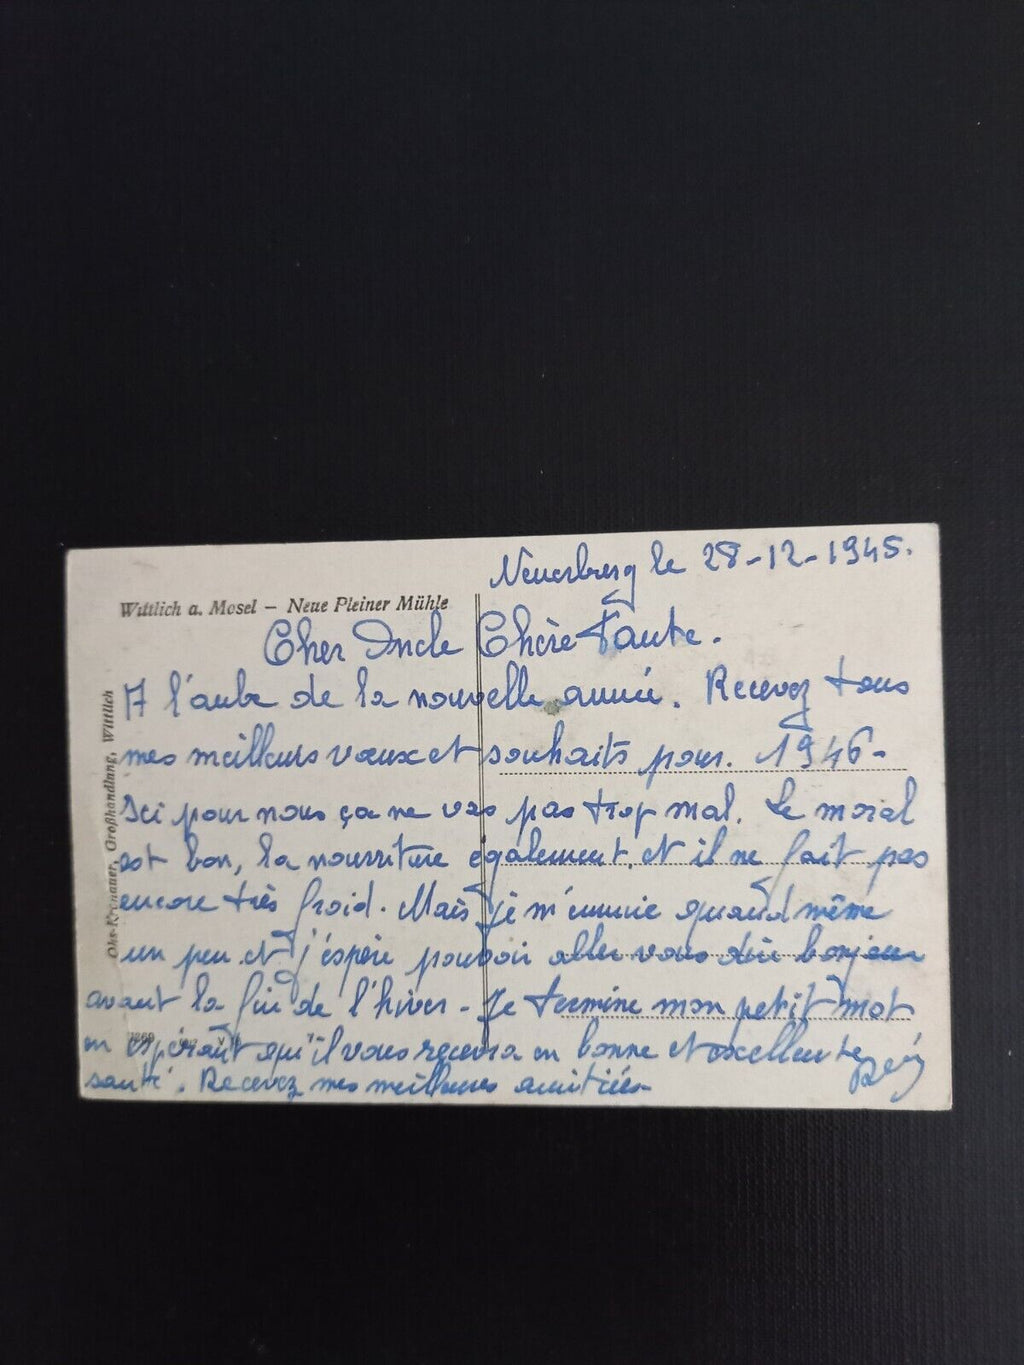 Neuerberg le 28-12-1945.
Wittlich a. Mosel – Neue Pleiner Mühle
Cher Oncle Chère Tante.
A l'aube de la nouvelle année. Recevez tous
mes meilleurs vœux et souhaits pour. 1946-
Ici pour nous ça ne vas pas trop mal. Le moral
est bon, la nourriture également. et il ne fait pas
encore très froid. Mais je m'ennuie quand même
un peu et j'espère pouvoir aller vous dire bonjour
avant la fin de l'hiver - Je termine mon petit mot
en espérant qu'il vous recevra en bonne et excellente
santé. Recevez mes meilleures amitiées
Großhandlung, Wittlich